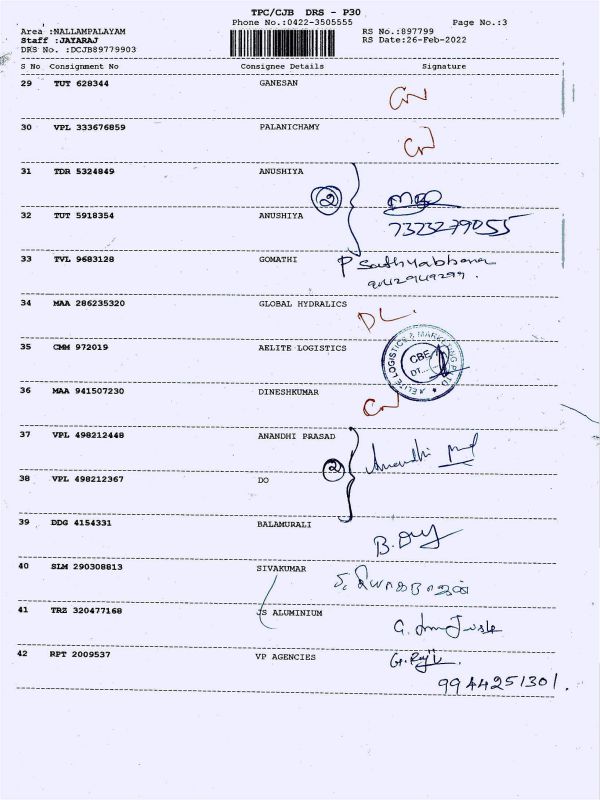 TPC/CJB DRS - P30
Phone No.:0422-3505555 Page No.:3
Area :NALLAMPALAYAM RS No.:897799
Staff :JAYARAJ RS Date:26-Feb-2022
DRS No. :DCJB89779903
S No Consignment No Consignee Details Signature
29 TUT 628344 GANESAN
30 VPL 333676859 PALANICHAMY
31 TDR 5324849 ANUSHIYA
2
32 TUT 5918354 ANUSHIYA
7323279055
33 TVL 9683128 GOMATHI P Sathyabhama
34 MAA 286235320 GLOBAL HYDRALICS DL.
35 CMM 972019 AELITE LOGISTICS
AELITE LOGISTICS & MARKETING P LTD
CBE
DT...
36 MAA 941507230 DINESHKUMAR
37 VPL 498212448 ANANDHI PRASAD
2 Anandhi
38 VPL 498212367 DO
39 DDG 4154331 BALAMURALI
40 SLM 290308813 SIVAKUMAR
41 TRZ 320477168 JS ALUMINIUM
42 RPT 2009537 VP AGENCIES G. Raju.
9944251301.